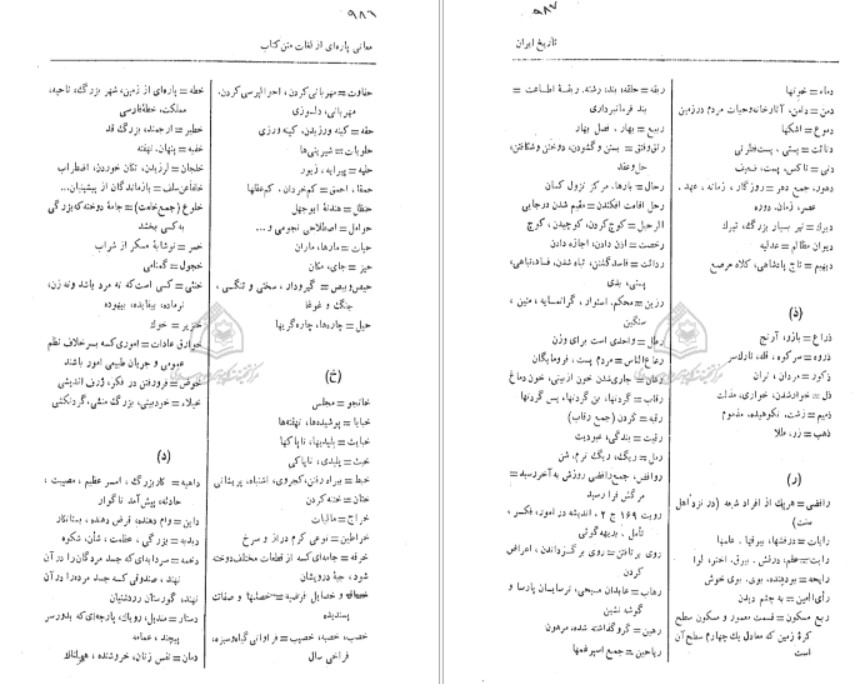 ۹۸۶
معانی پاره‌ای از لغات متن کتاب
حفاوت = مهربانی کردن، احوالپرسی کردن،
مهربانی، دلسوزی
حقه = کینه ورزیدن، کینه ورزی
حلویات = شیرینی‌ها
حلیه = پیرایه، زیور
حمقا، احمق = کم‌خردان، کم‌عقلها
حنظل = هندانهٔ ابوجهل
حوامل = اصطلاحی نجومی و...
حیات = مارها، ماران
حیز = جای، مکان
حیص‌وبیص = گیرودار، سختی و تنگی،
جنگ و غوغا
حیل = چاره‌ها، چاره‌گریها
(خ)
خانجو = مجلس
خبایا = پوشیده‌ها، نهفته‌ها
خبایث = پلیدیها، ناپاکیها
خبث = پلیدی، ناپاکی
خبط = بیراه رفتن، کجروی، اشتباه، پریشانی
ختان = ختنه کردن
خراج = مالیات
خراطین = نوعی کرم دراز و سرخ
خرقه = جامه‌ای که از قطعات مختلف دوخته
شود، جبهٔ درویشان
خصال و خصایل فرضیه = خصلتها و صفات
پسندیده
خصب، خصبه، خصیب = فراوانی گیاه‌وسبزه،
فراخی سال
خطه = پاره‌ای از زمین، شهر بزرگ، ناحیه،
مملکت، خطهٔ فارسی
خطیر = ارجمند، بزرگ قد
خفیه = پنهان، نهفته
خلجان = لرزیدن، تکان خوردن، اضطراب
خلفاً عن سلف = بازماندگان از پیشینیان...
خلوع (جمع خلعت) = جامهٔ دوخته که بزرگی
به کسی بخشد
خمر = نوشابهٔ مسکر از شراب
خمول = گمنامی
خنثی = کسی است که نه مرد باشد ونه زن،
نرماده، بیفایده، بیهوده
خنزیر = خوک
خوارق عادات = اموری که بر خلاف نظم
عمومی و جریان طبیعی امور باشند
خوض = فرورفتن در فکر، ژرف اندیشی
خیلاء = خودبینی، بزرگ منشی، گردنکشی
(د)
داهیه = کار بزرگ، امر عظیم، مصیبت،
حادثه، پیش آمد ناگوار
داین = وام دهنده، قرض دهنده، بستانکار
دبدبه = بزرگی، عظمت، شأن، شکوه
دخمه = سردابه‌ای که جسد مردگان را در آن
نهند، صندوقی که جسد مرده را در آن
نهند، گورستان زردشتیان
دستار = مندیل، روپاک، پارچه‌ای که بدور سر
پیچند، عمامه
دمان = نفس زنان، خروشنده، هولناک
۹۸۷
تاریخ ایران
دماء = خونها
دمن = دامن، آثار خانه وحیات مردم درزمین
دموع = اشکها
دنائت = پستی، پست‌فطرتی
دنی = ناکس، پست، ضعیف
دهور، جمع دهر = روزگار، زمانه، عهد،
عصر، زمان، دوره
دیرک = تیر بسیار بزرگ، تیرک
دیوان مظالم = عدلیه
دیهیم = تاج پادشاهی، کلاه مرصع
(ذ)
ذراع = بازو، آرنج
ذروه = سرکوه، قله، تارک‌سر
ذکور = مردان، نران
ذل = خوارشدن، خواری، مذلت
ذمیم = زشت، نکوهیده، مذموم
ذهب = زر، طلا
(ر)
رافضی = هریک از افراد شیعه (در نزد اهل
سنت)
رایات = درفشها، بیرقها، علمها
رایت = علم، درفش، بیرق، اختر، لوا
رایحه = بودهنده، بوی، بوی خوش
رأی‌العین = به چشم دیدن
ربع مسکون = قسمت معمور و مسکون سطح
کرهٔ زمین که معادل یک چهارم سطح آن
است
ربقه = حلقه، بند، رشته، ربقهٔ اطاعت =
بند فرمانبرداری
ربیع = بهار، فصل بهار
رتق‌وفتق = بستن وگشودن، دوختن وشکافتن،
حل‌وعقد
رحال = بارها، مرکز نزول کسان
رحل اقامت افکندن = مقیم شدن درجایی
الرحیل = کوچ کردن، کوچیدن، کوچ
رخصت = اذن دادن، اجازه دادن
ردائت = فاسدگشتن، تباه شدن، فساد، تباهی،
پستی، بدی
رزین = محکم، استوار، گرانمایه، متین،
سنگین
رطل = واحدی است برای وزن
رعاع‌الناس = مردم پست، فرومایگان
رعاف = جاری شدن خون ازبینی، خون دماغ
رقاب = گردنها، بن گردنها، پس گردنها
رقبه = گردن (جمع رقاب)
رقیت = بندگی، عبودیت
رمل = ریگ، ریگ نرم، شن
روافض، جمع رافضی روزش به آخر رسید =
مرگش فرا رسید
رویت ۱۶۹ ج ۲، اندیشه در امور، فکر،
تأمل، بدیهه‌گوئی
روی برتافتن = روی برگرداندن، اعراض
کردن
رهاب = عابدان مسیحی، ترسایان پارسا و
گوشه نشین
رهین = گروگذاشته شده، مرهون
ریاحین = جمع اسپرغمها